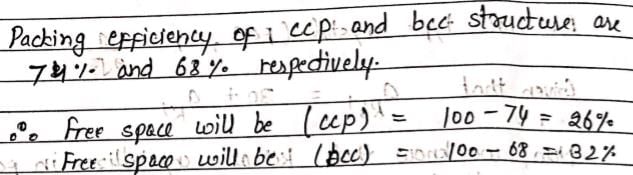 Packing efficiency of ccp and bcc structure are
74% and 68% respectively.
∴ free space will be (ccp) = 100 - 74 = 26%
Free space will be (bcc) = 100 - 68 = 32%